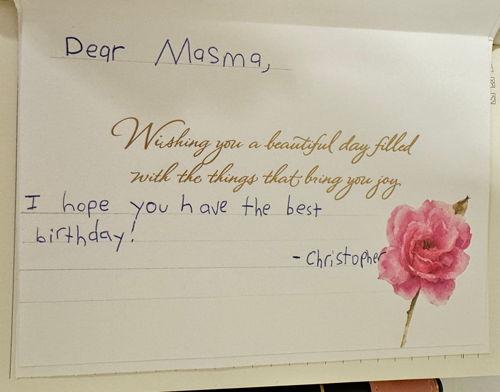 Dear Masma,
Wishing you a beautiful day filled
with the things that bring you joy.
I hope you have the best
birthday!
- Christopher